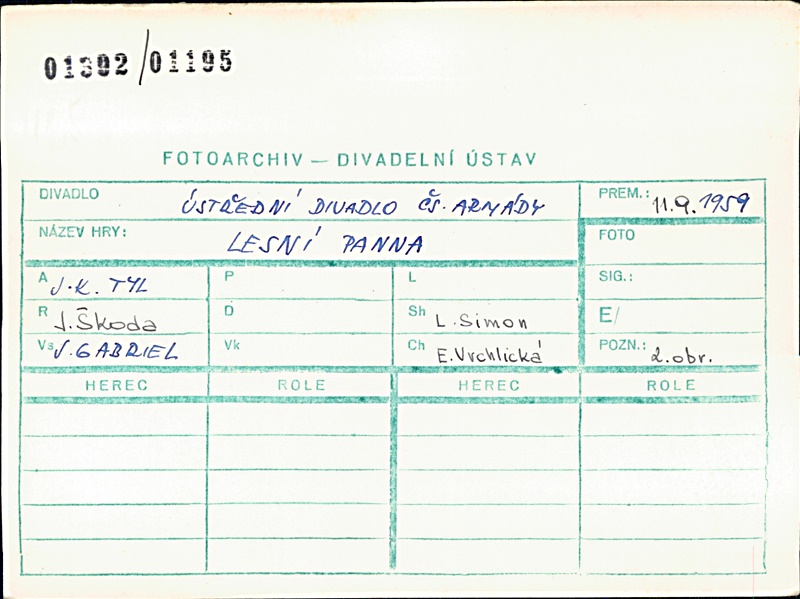 01392/01195
FOTOARCHIV — DIVADELNÍ ÚSTAV
DIVADLO ÚSTŘEDNÍ DIVADLO ČS. ARMÁDY PREM.: 11.9.1959
NÁZEV HRY: LESNÍ PANNA FOTO
A J.K. TYL P L SIG.:
R J. Škoda D Sh L. Simon E/
Vs J. GABRIEL Vk Ch E. Vrchlická POZN.: 2. obr.
HEREC ROLE HEREC ROLE